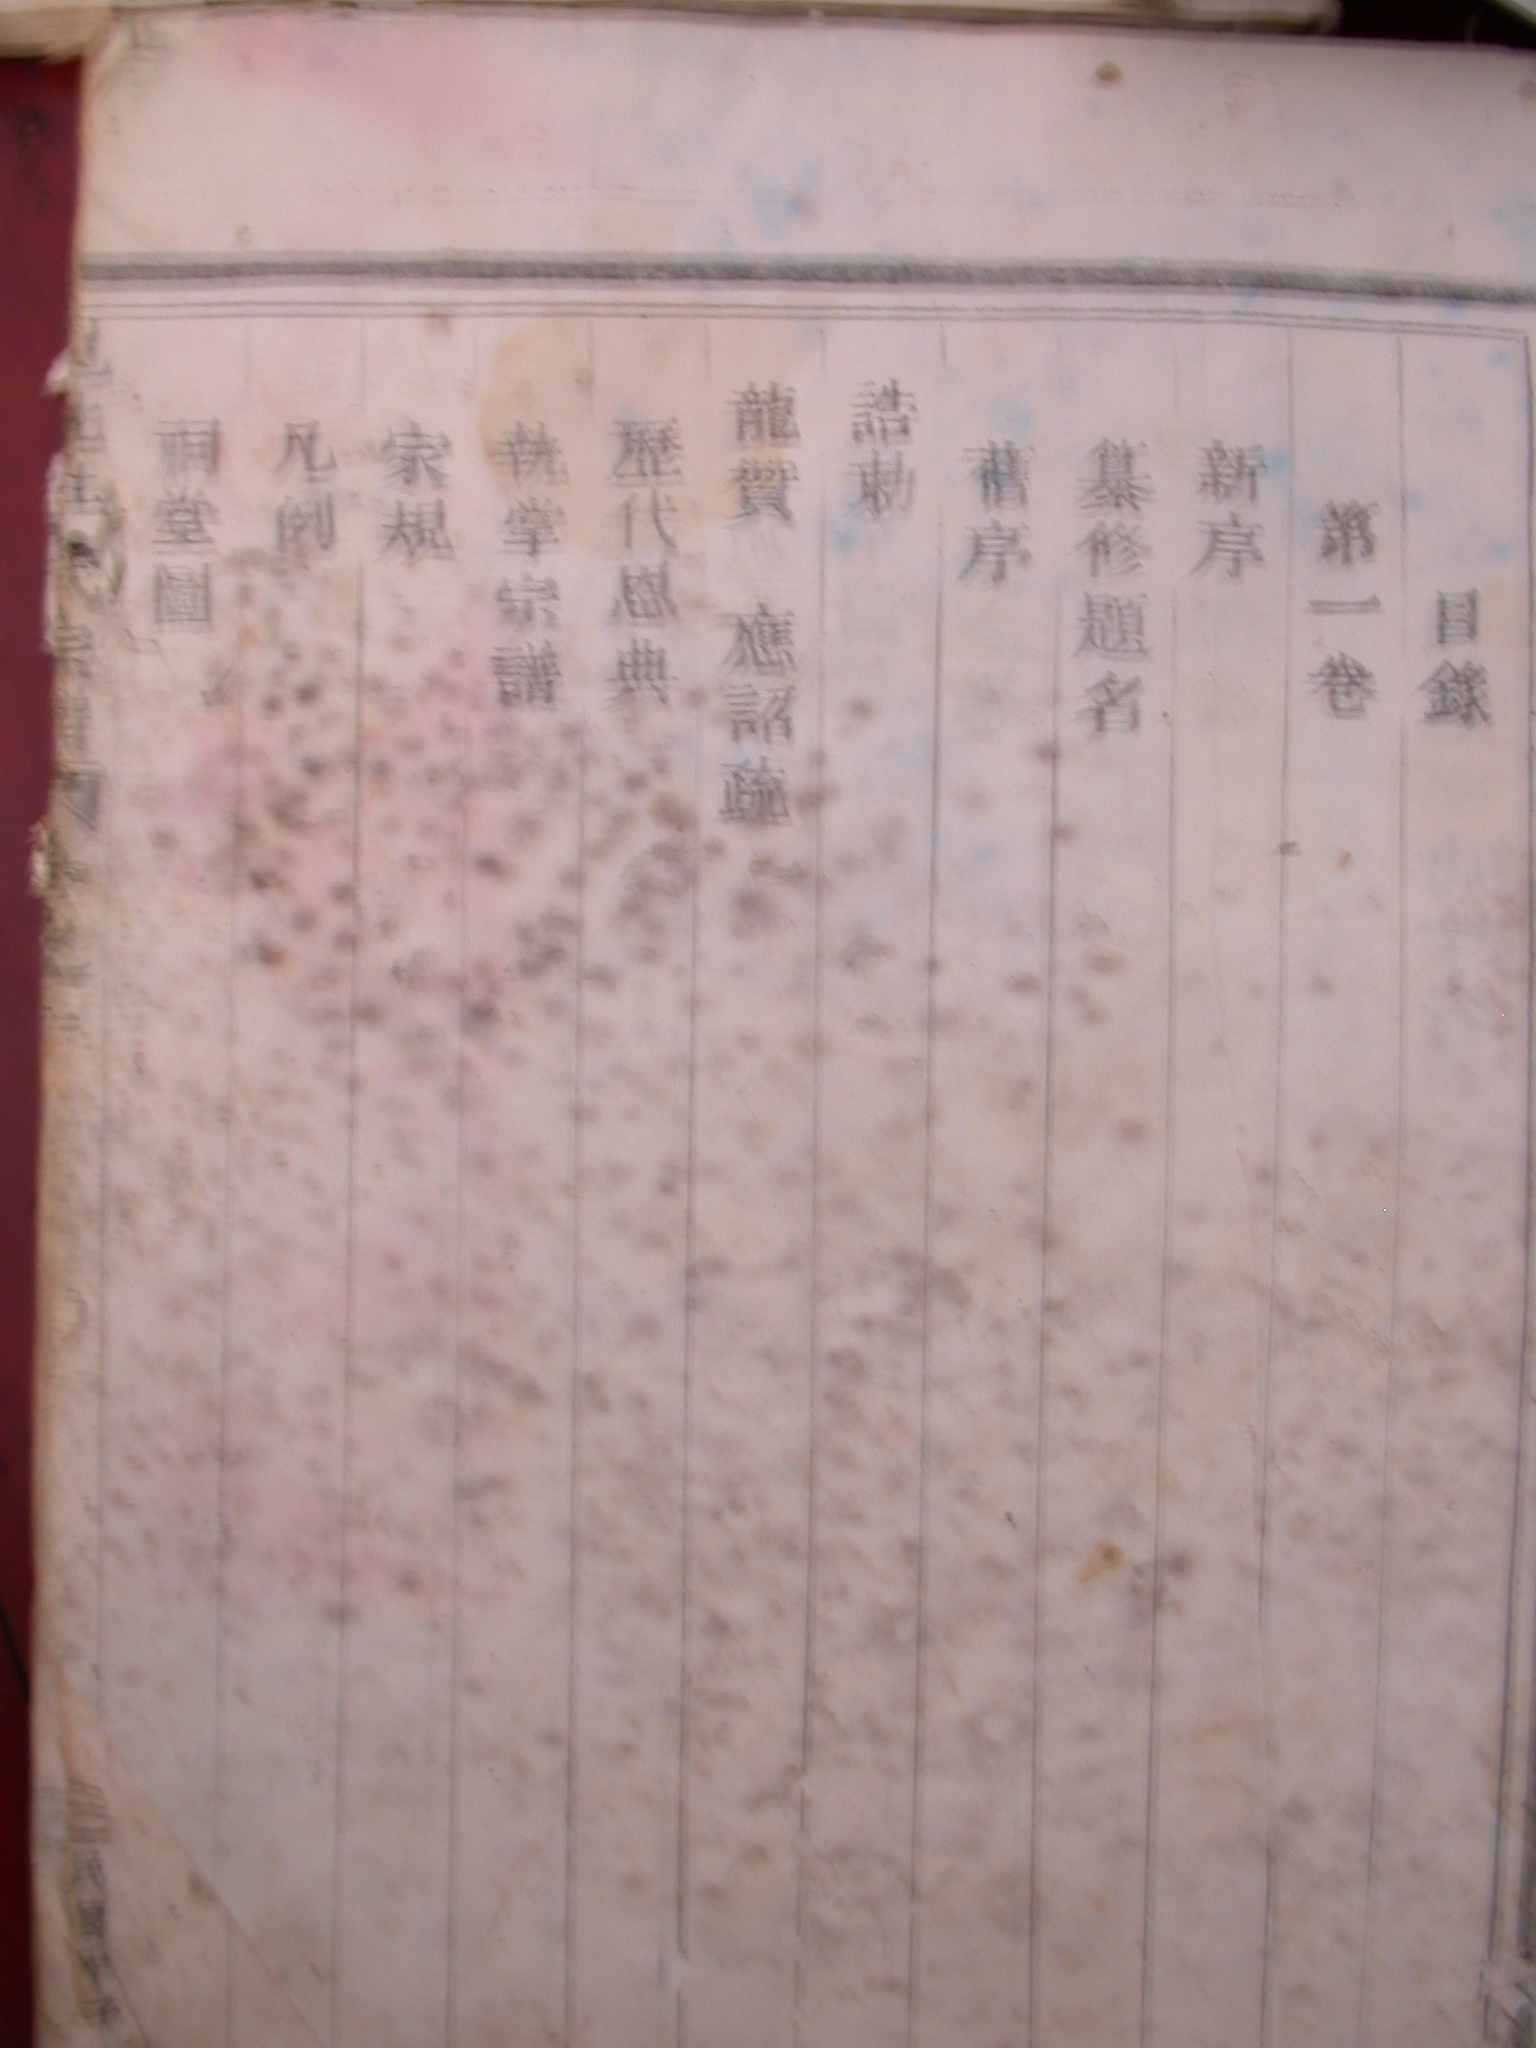 目錄
第一卷
新序
纂修題名
舊序
誥勅
龍贊 應詔疏
歷代恩典
執掌宗譜
家規
凡例
祠堂圖
民國甲子